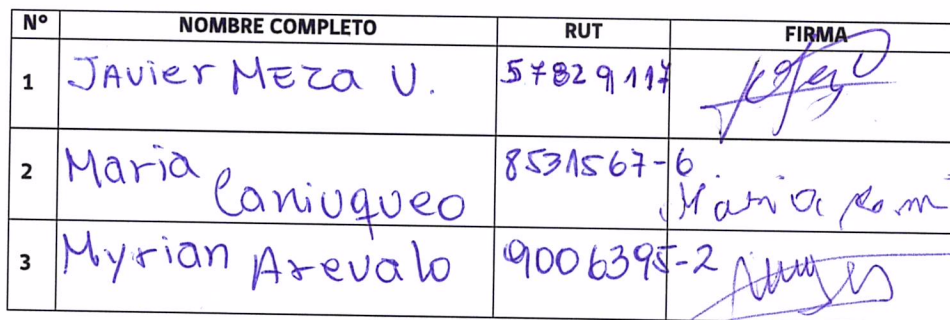 Nº NOMBRE COMPLETO RUT FIRMA
1 JAvier MEza U. 578291117
2 Maria Caniuqueo 8531567-6 Maria
3 Myrian Arevalo 9006395-2